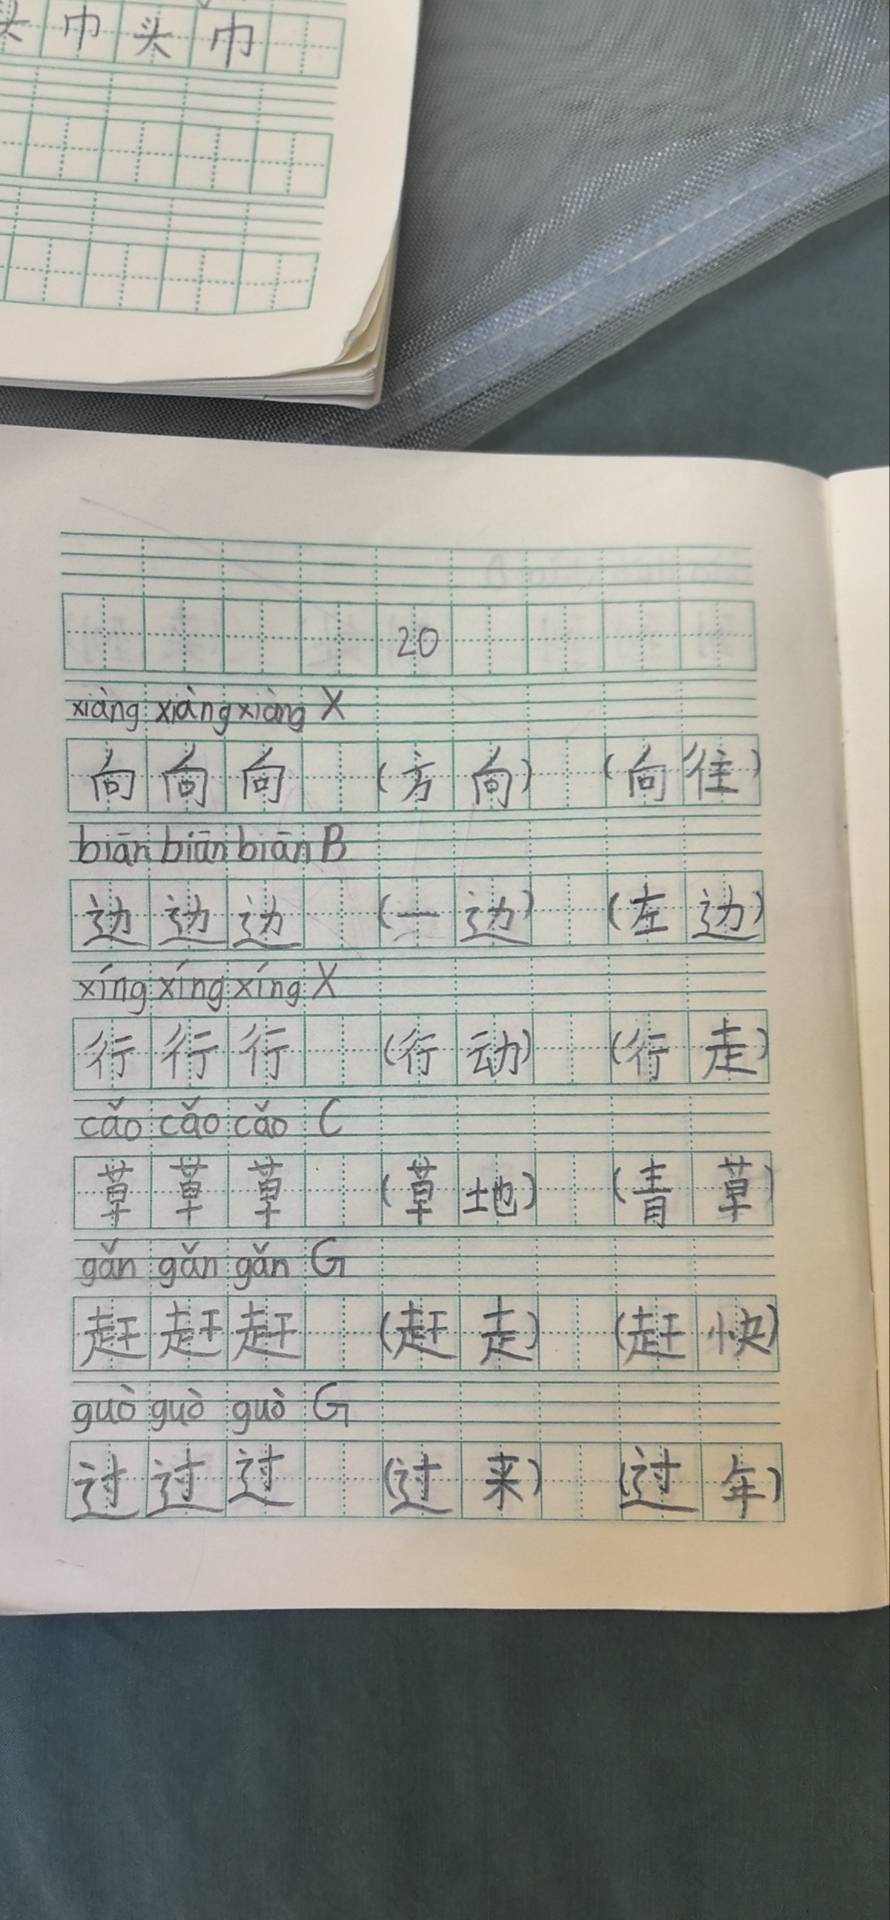 头巾头巾
20
xiàng xiàng xiàng X
向向向 (方向) (向往)
biān biān biān B
边边边 (一边) (左边)
xíng xíng xíng X
行行行 (行动) (行走)
cǎo cǎo cǎo C
草草草 (草地) (青草)
gǎn gǎn gǎn G
赶赶赶 (赶走) (赶快)
guò guò guò G
过过过 (过来) (过年)